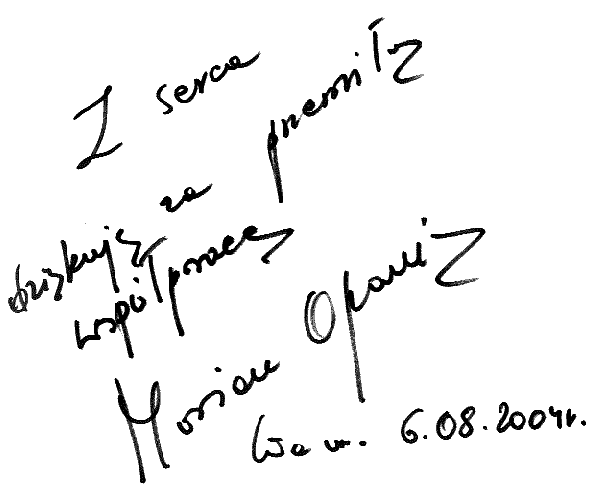 Z serca
dziękuję za przemiłą
współpracę
Marian Opania
W-wa. 6.08.2004r.